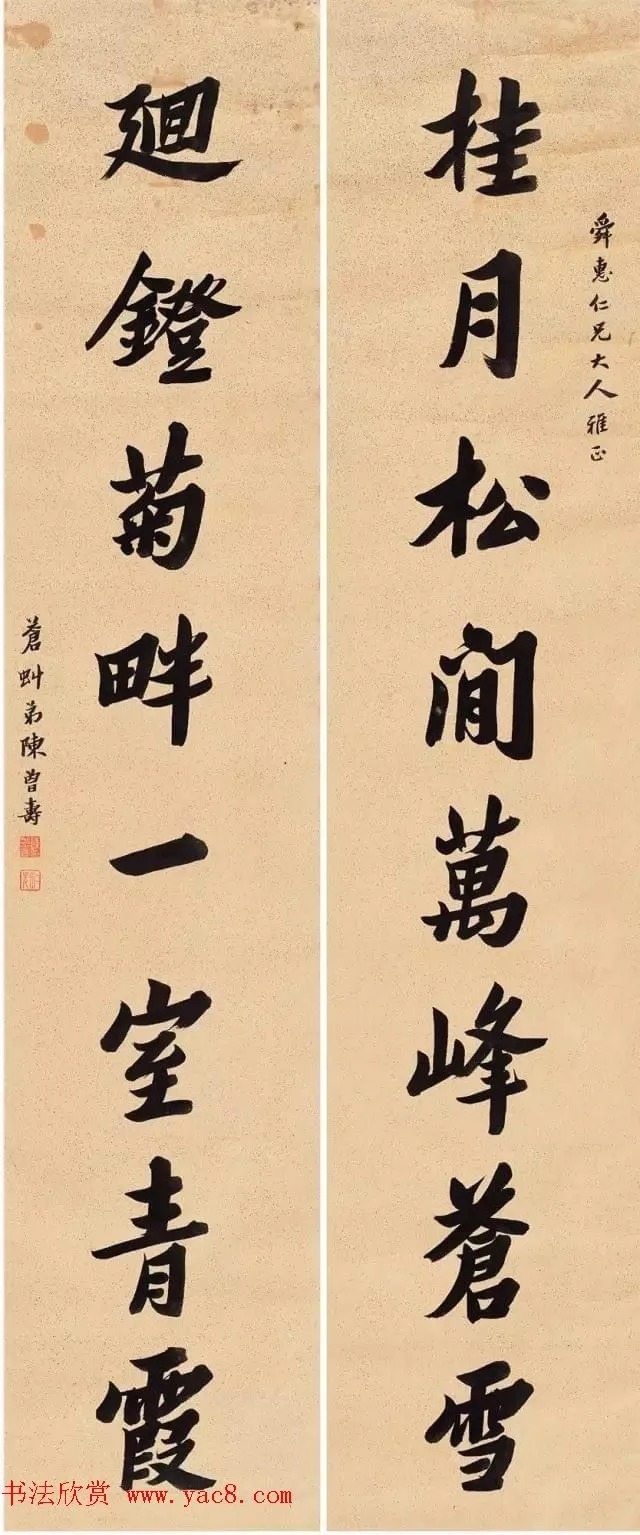 舜惠仁兄大人雅正
挂月松閒萬峰蒼雪
廻鐙菊畔一室青霞
蒼虯弟陳曾壽
书法欣赏 www.yac8.com